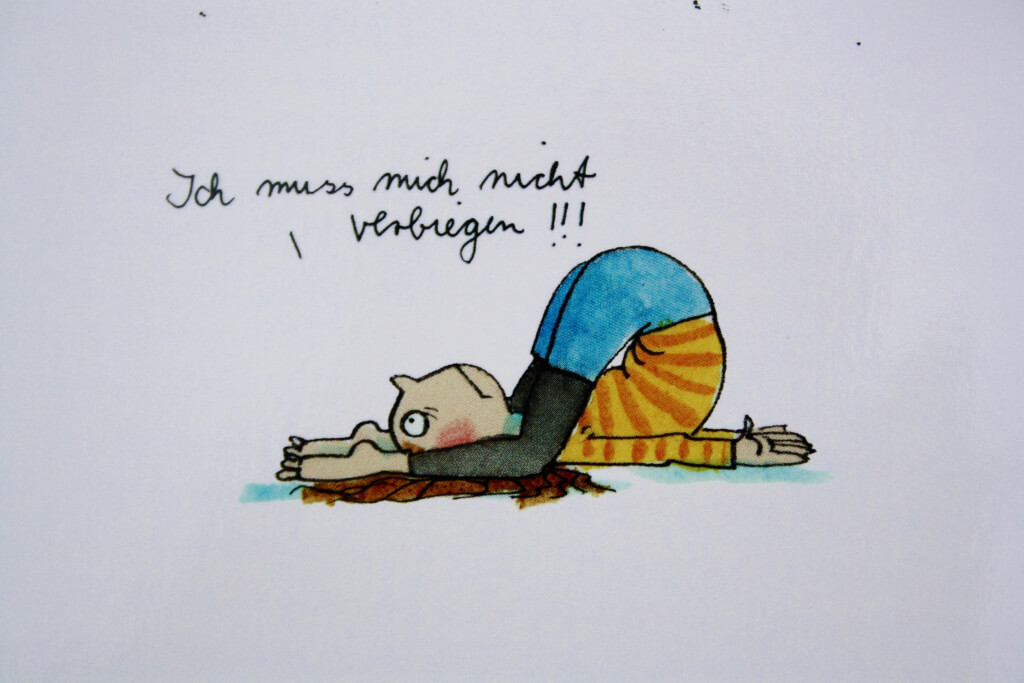 Ich muss mich nicht
verbiegen !!!